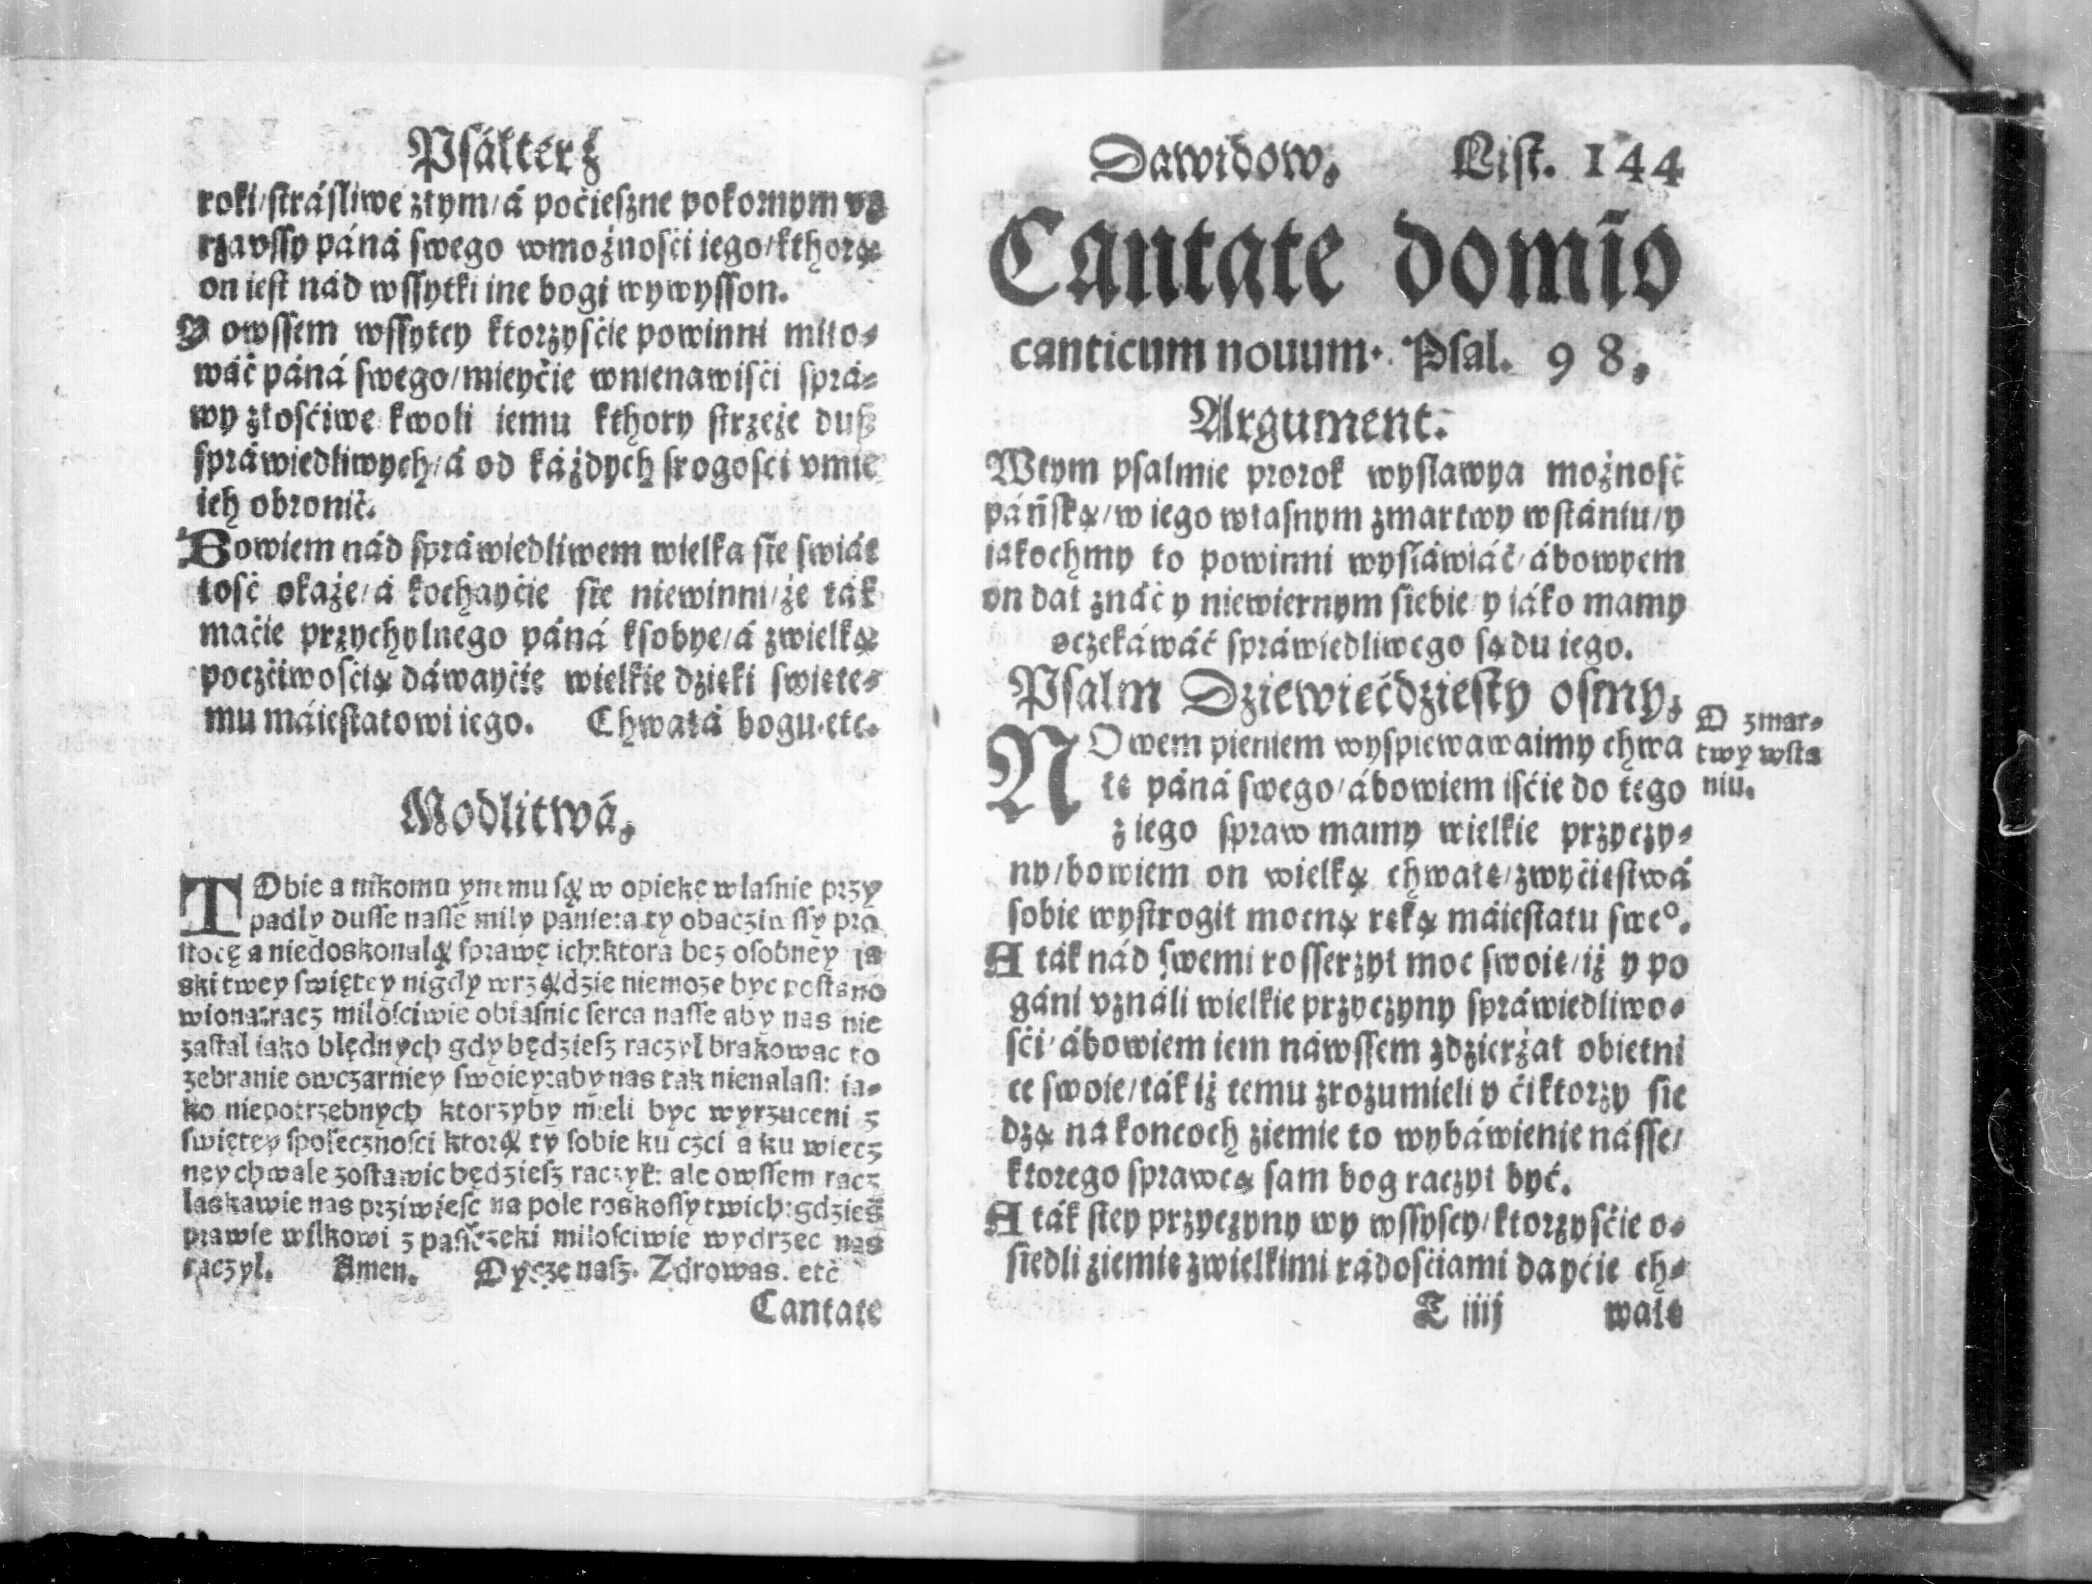 Psałterz
roki/strásliwe złym/á pocieszne pokornym vy
rzavssy páná swego wmożnosći iego/kthorą
on iest nád wssytki ine bogi wywysson.
A owssem wssytcy ktorzysćie powinni miło-
wáć páná swego/mieyćie wnienawisći sprá-
wy złosćiwe kwoli iemu kthory strzeże dusz
spráwiedliwych/á od káżdych srogosci vmie
ich obronić.
Bowiem nád spráwiedliwem wielka sie swiát
łosć okaże/á kochayćie sie niewinni/że ták
maćie przychylnego páná ksobye/á zwielką
poczćiwosćią dáwayćie wielkie dzięki swięte-
mu máiestatowi iego. Chwałá bogu.etc.
Modlitwá.
TObie a nikomu ynemu są w opiekę wlasnie przy
padly dusse nasse mily panie:a ty obacziwssy pro
stocę a niedoskonalą sprawę ich:ktora bez osobney ła
ski twey swiętey nigdy wrządzie niemoże byc postano
wiona:racz milosciwie obiasnic serca nasse aby nas nie
zastal iako blędnych gdy będziesz raczyl brakowac to
zebranie owczarniey swoiey:aby nas tak nienalasl: ia-
ko niepotrzebnych ktorzyby mieli byc wyrzuceni z
swiętey spoleczności ktorą ty sobie ku czci a ku wiecz
ney chwale zostawic będziesz raczyl: ale owssem racz
laskawie nas prziwiesc na pole roskossy twich:gdzies
prawie wilkowi z pasiczeki milosciwie wydrzec nas
raczyl. Amen. Oycze nasz. Zdrowas. etc
Cantate
Dawidow. List. 144
Cantate domīo
canticum nouum. Psal. 98.
Argument.
Wtym psalmie prorok wysławya możnosć
páńską/w iego własnym zmartwy wstániu/y
iakochmy to powinni wysłáwiáć/ábowyem
on dał znáć y niewiernym siebie/y iáko mamy
oczekáwáć spráwiedliwego sądu iego.
Psalm Dziewiećdziesty osmy.
O zmar-
twy wsta
niu.
NOwem pieniem wyspiewawaimy chwa
łę páná swego/ábowiem isćie do tego
z iego spraw mamy wielkie przyczy-
ny/bowiem on wielką chwałę/zwyćięstwá
sobie wystrogił mocną ręką máiestatu sweº.
A ták nád swemi rosserzył moc swoię/iż y po
gáni vználi wielkie przyczyny spráwiedliwo-
sći/ábowiem iem náwssem zdzierżał obietni
ce swoie/ták iż temu zrozumieli y ći ktorzy sie
dzą na koncoch ziemie to wybáwienie násse/
ktorego sprawcą sam bog raczył być.
A ták stey przyczyny wy wssyscy/ktorzysćie o-
siedli ziemię zwielkimi rádosćiami dayćie ch-
T iiij wałę